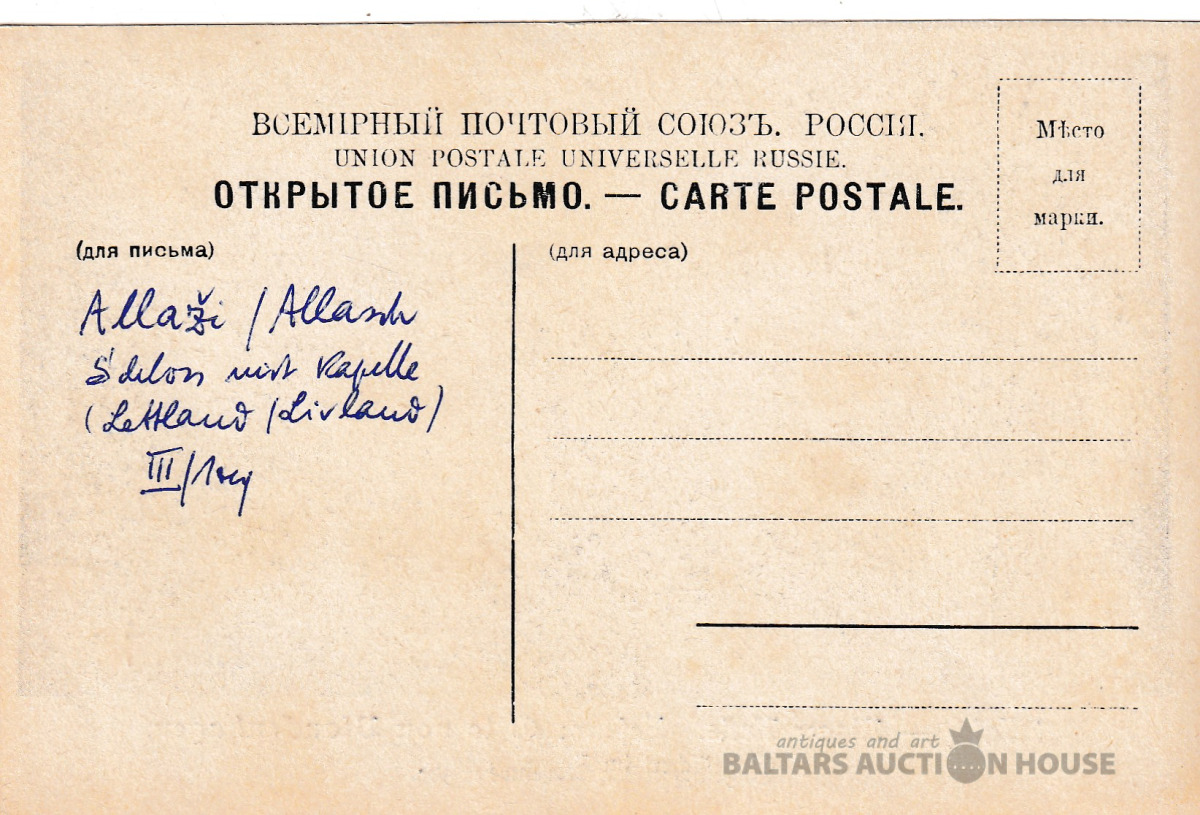 ВСЕМІРНЫЙ ПОЧТОВЫЙ СОЮЗЪ. РОССІЯ.
UNION POSTALE UNIVERSELLE RUSSIE.
ОТКРЫТОЕ ПИСЬМО. — CARTE POSTALE.
Мѣсто
для
марки.
(для письма)
(для адреса)
Allaži / Allasch
Schloss mit Kapelle
(Lettland / Livland)
III/
antiques and art
BALTARS AUCTION HOUSE